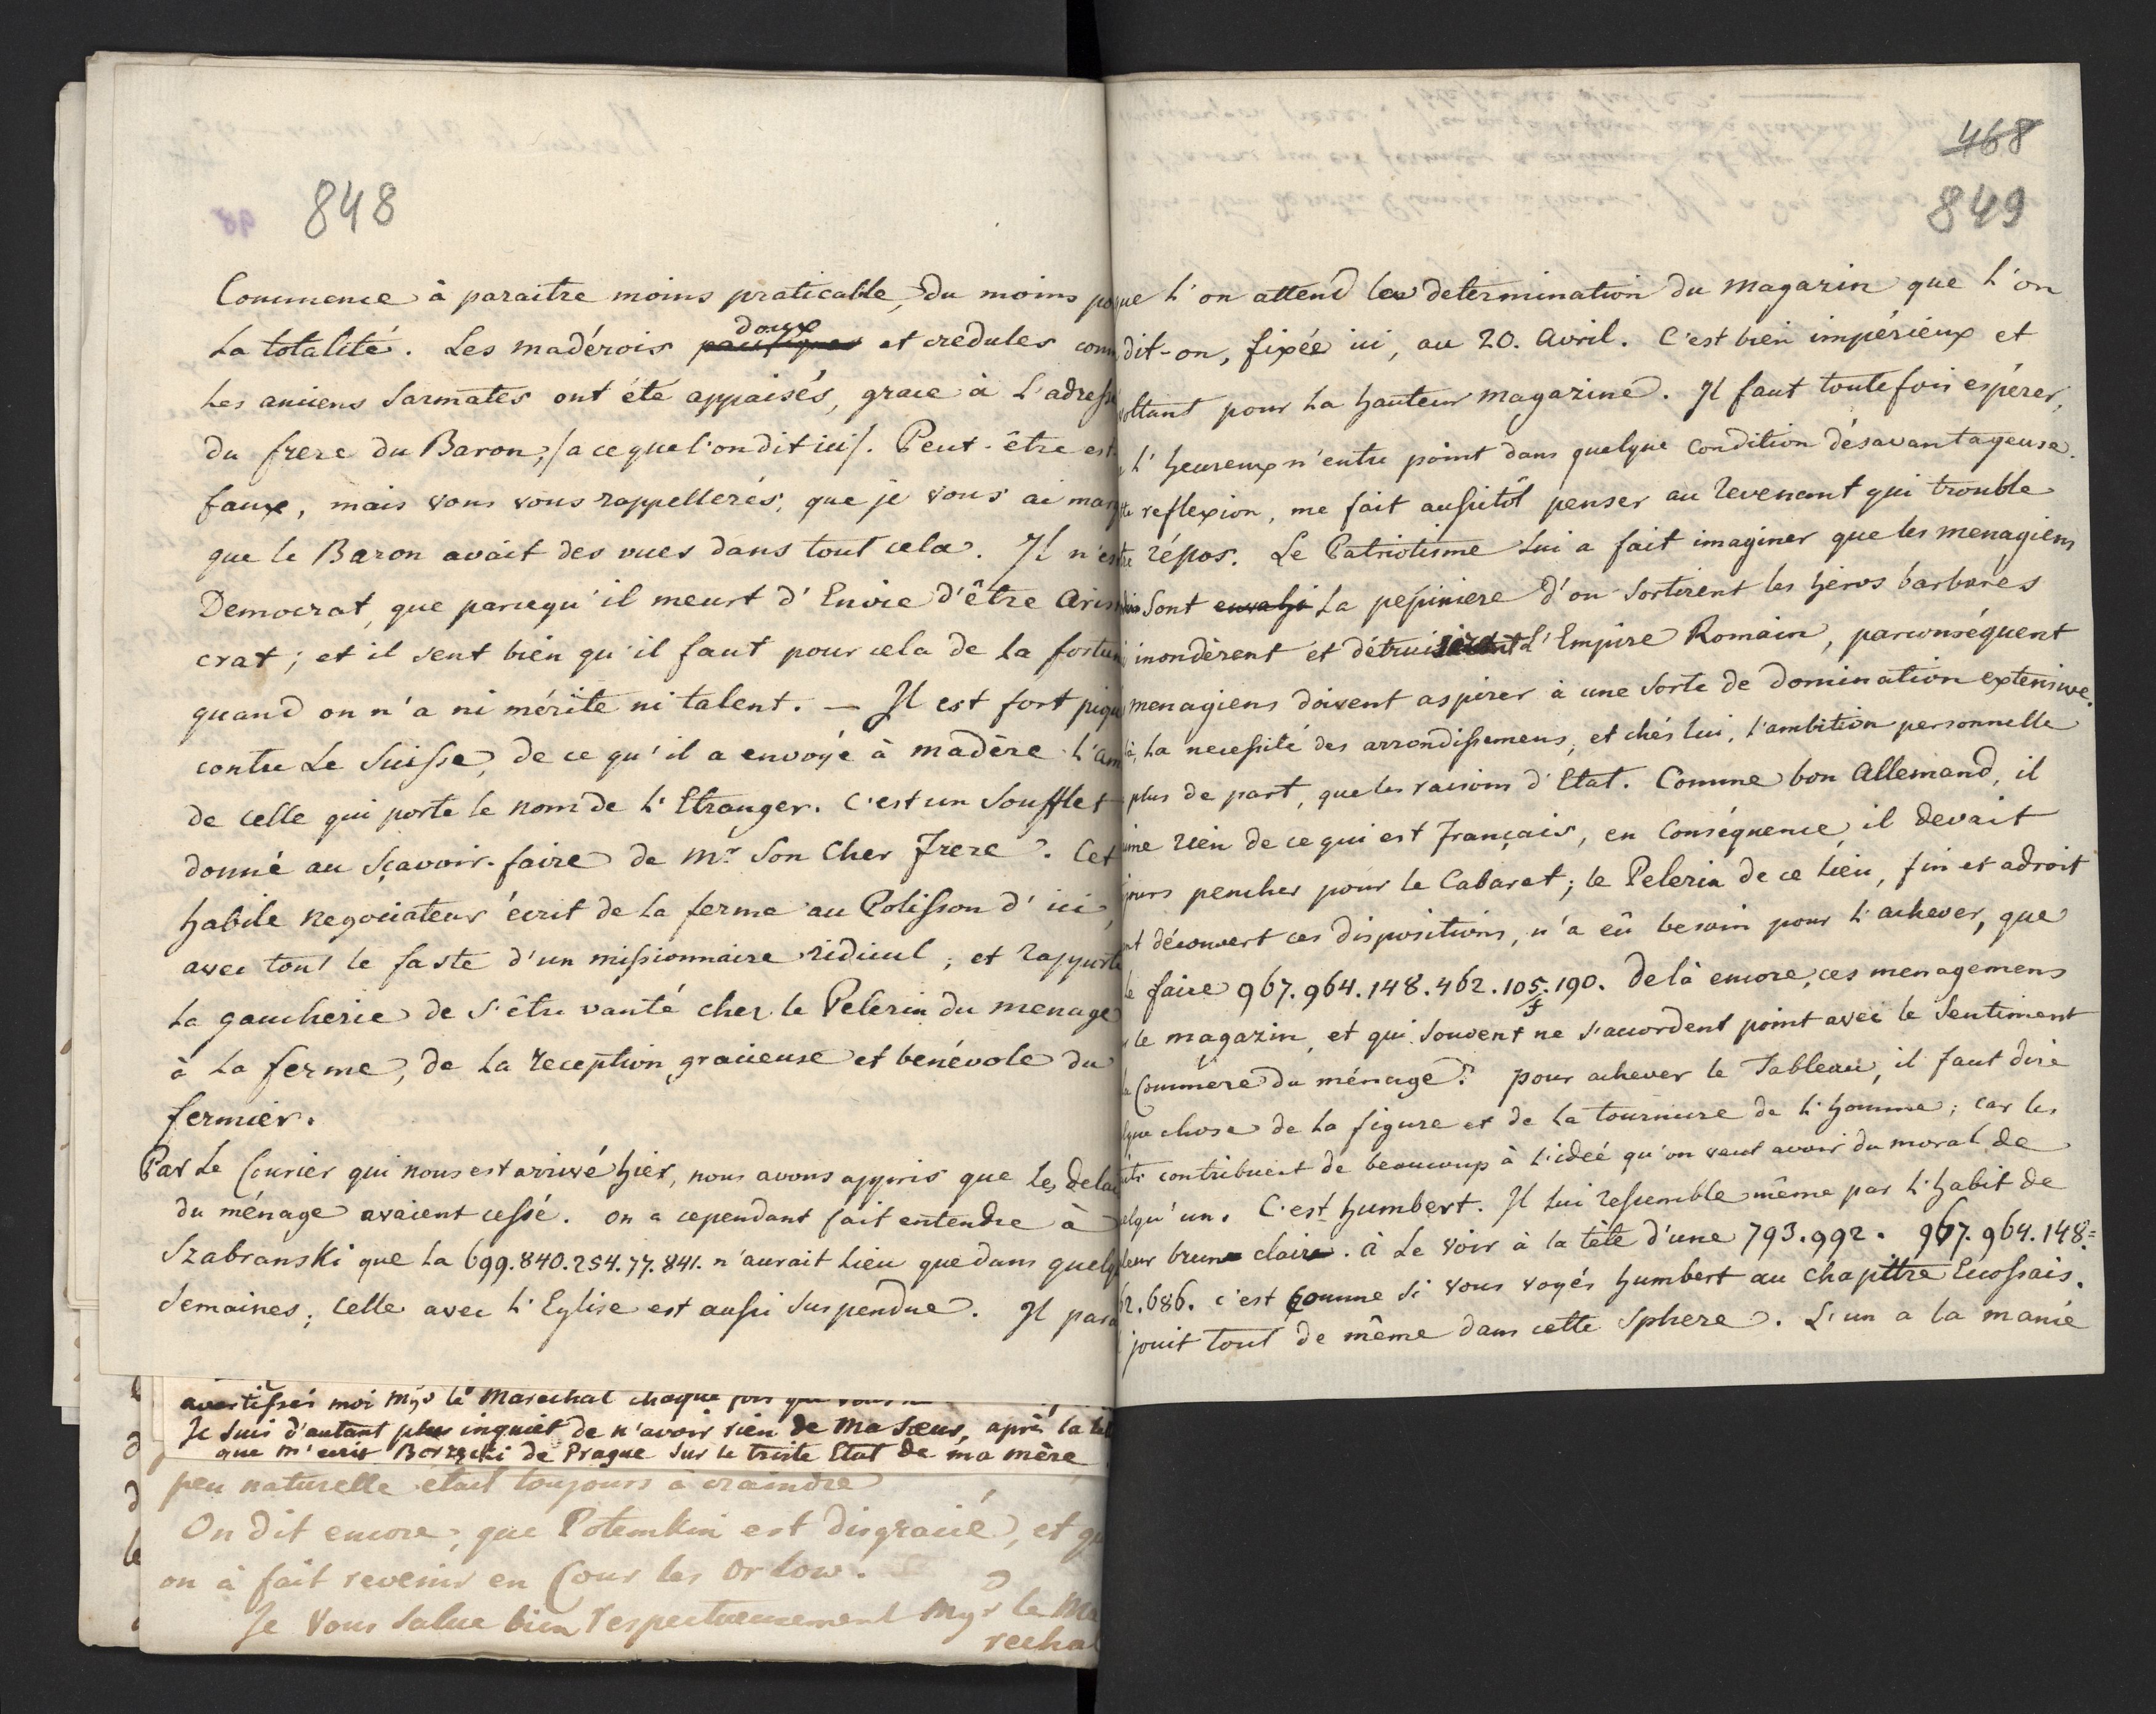 848
Commence à paraitre moins praticable, du moins
La totalité. Les madérois doux et credules
les anciens Sarmates ont été appaisés, grace à L'adresse
du frere du Baron, /a ce que l'on dit ici/. Peut-être est
faux, mais vous vous rappellerés, que je vous ai
que le Baron avait des vues dans tout cela. Il n'est
Democrat, que parcequ'il meurt d'Envie d'être Aris
crat; et il sent bien qu'il faut pour cela de la
quand on n'a ni mérite ni talent. — Il est fort
contre Le Suisse, de ce qu'il a envoyé à madère
de celle qui porte le nom de L'Etranger. C'est un Soufflet
donné au Sçavoir-faire de Mr. Son Cher Frere. Cet
habile negociateur écrit de la ferme au Polisson d'ici,
avec tout le faste d'un missionnaire ridicul; et rapporte
La gaucherie de s'être vanté chez le Pelerin du menage
à La ferme, de La reception gracieuse et benévole du
fermier.
Par Le Courier qui nous est arrivé hier, nous avons appris que Les
du ménage avaient cessé. on a cependant fait entendre à
Szabranski que La 699.840.254.77.841. n'aurait Lieu que dans
Semaines; Celle avec L'Eglise est aussi Suspendue. Il
avertissés moi Mgr le Marechal chaque fois que
Je suis d'autant plus inquiet de n'avoir rien de Ma Sœur, après la
que m'ecrit Borzecki de Prague Sur le triste Etat de ma mère
peu naturelle etait toujours à craindre
On dit encore, que Potemkin est disgracié, et
on à fait revenir en Cour les Orlow.
Je Vous Salue bien respectueusement Mgr le Ma
rechal
468
849
que L'on attend la determination du magazin que L'on
dit-on, fixée ici, au 20. Avril. C'est bien impérieux et
pour La hauteur magazine. Il faut toutefois espérer,
L'heureux n'entre point dans quelque Condition désavantageuse.
reflexion, me fait aussitôt penser au revenant qui trouble
répos. Le Patriotisme Lui a fait imaginer que les menagiens
Sont La pepiniere d'ou Sortirent les héros barbares
inondèrent et détruisirent L'Empire Romain, parconséquent
menagiens doivent aspirer à une Sorte de domination extensive.
La necessité des arrondissemens, et chés lui, l'ambition personnelle
plus de part, que les raisons d'Etat. Comme bon Allemand, il
rien de ce qui est Français, en Conséquence il devait
pencher pour le Cabaret; le Pelerin de ce Lieu, fin et adroit
découvert ces dispositions, n'a eû besoin pour L'achever, que
faire 967.964.148.462.105.190. De là encore, ces menagemens
le magazin, et qui Souvent ne s'accordent point avec le Sentiment
Commere du ménage. pour achever le Tableau, il faut dire
chose de La figure et de La tournure de L'homme; car les
contribuent de beaucoup à L'ideé qu'on veut avoir du moral de
quelqu'un. C'est humbert. Il Lui ressemble même par L'habit de
couleur brune claire. à Le voir à la tête d'une 793.992. 967.964.148.=
62.686. c'est comme Si vous voyés humbert au chapittre Ecossais.
jouit tout de même dans cette Sphere. L'un a la manie